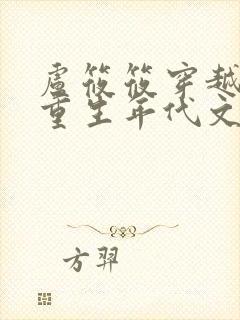 盧筱筱穿越
重生年代文
方羿